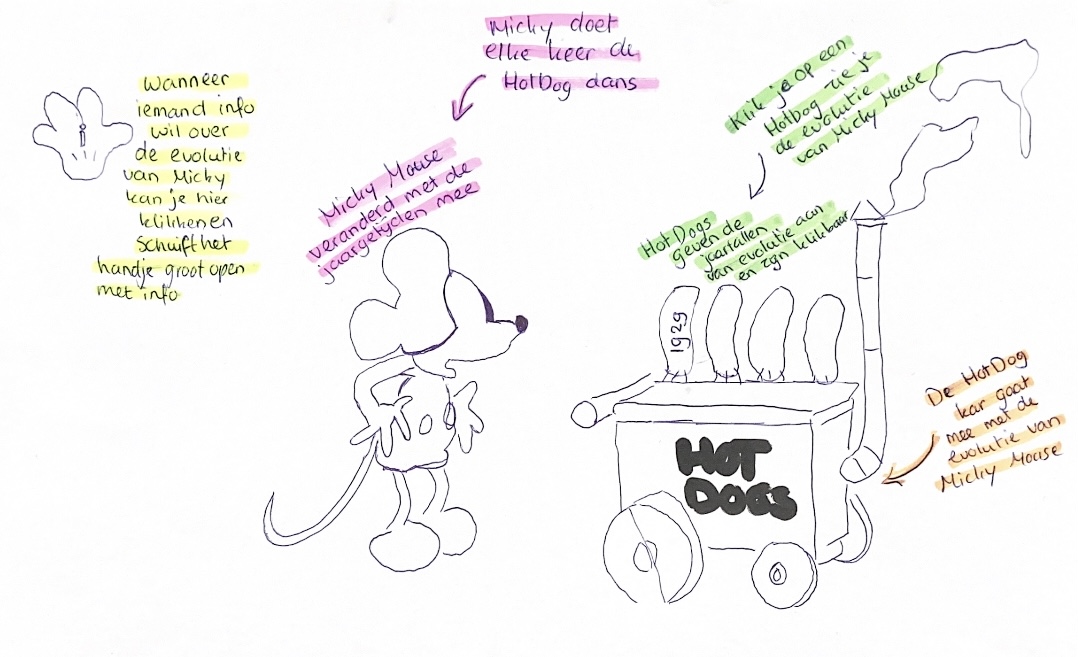 Wanneer
iemand info
wil over
de evolutie
van Micky
kan je hier
klikken en
Schuift het
handje groot open
met info
i
Micky doet
elke keer de
HotDog dans
Micky Mouse
veranderd met de
jaargetijden mee
Klik je op een
HotDog zie je
de evolutie
van Micky Mouse
HotDogs
geven de
jaartallen
van evolutie aan
en zijn klikbaar
1929
HOT
DOGS
De HotDog
kar gaat
mee met de
evolutie van
Micky Mouse